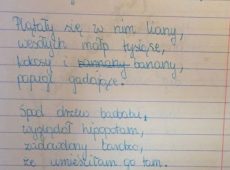 Plątały się w nim liany,
wesołych małp tysiące,
kokosy i banany,
papugi gadające.
Spod drzewa baobabu,
wyglądał hipopotam,
zadowolony bardzo,
że umieściłam go tam.